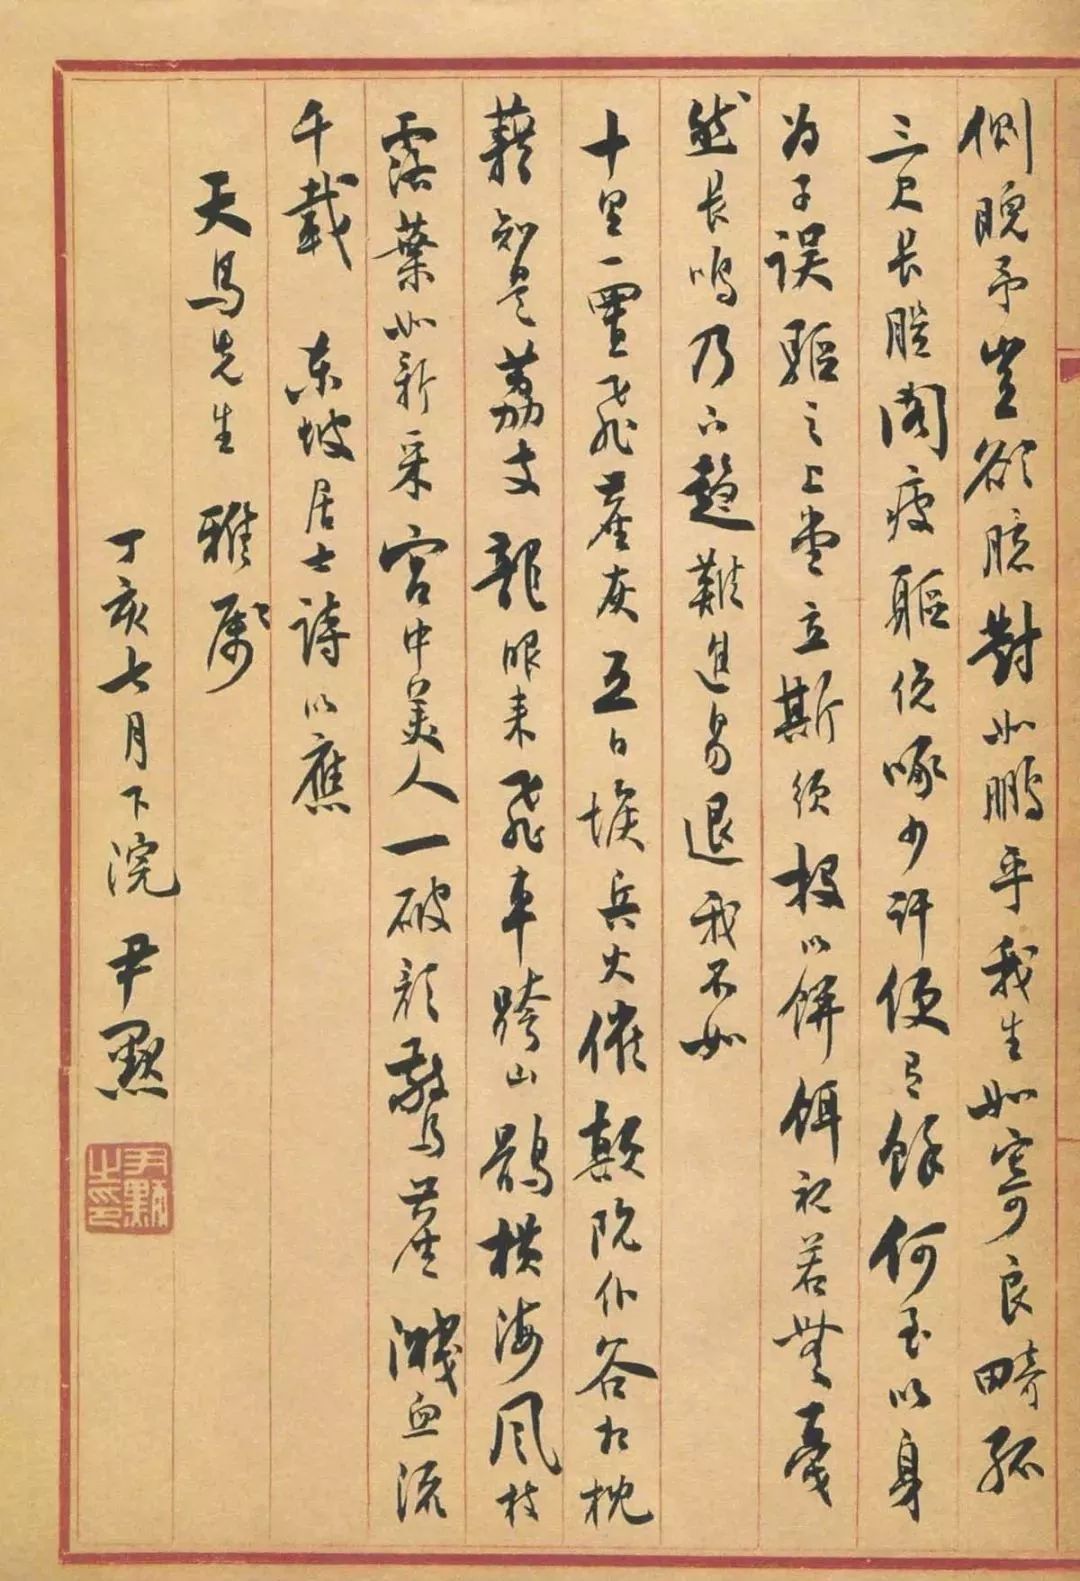 側睨予豈欲臆對如鵩乎我生如寄良畸孤
三尺長脛閣瘦軀俛啄少許便有餘何至以身
為子誤驅之上堂立斯須投以餅餌視若無戛
然長鳴乃下趨難進易退我不如
十里一置飛塵灰五日堠兵火催顛阬仆谷相枕
藉知是荔支龍眼來飛車跨山鶻橫海風枝
露葉如新采宮中美人一破顏驚塵濺血流
千載 東坡居士詩以應
天馬先生 雅屬
丁亥七月下浣 尹默
尹默之印